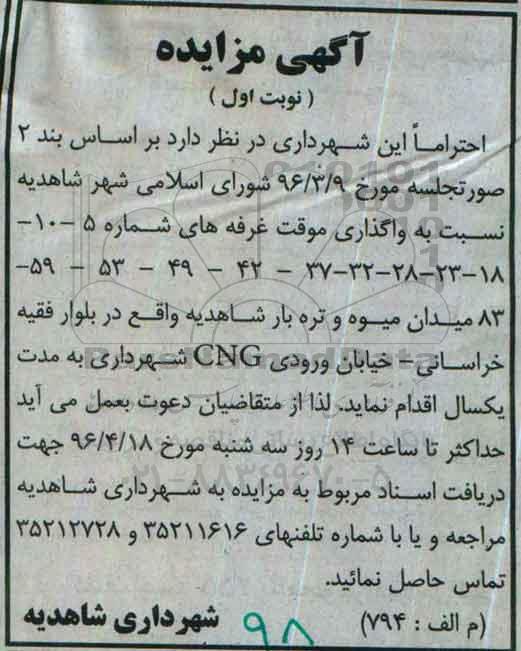 آگهی مزایده
( نوبت اول )
احتراماً این شهرداری در نظر دارد بر اساس بند ۲
صورتجلسه مورخ ۹۶/۳/۹ شورای اسلامی شهر شاهدیه
نسبت به واگذاری موقت غرفه های شماره ۵ -۱۰-
۱۸-۲۳-۲۸-۳۲-۳۷ - ۴۲ - ۴۹ - ۵۳ - ۵۹-
۸۳ میدان میوه و تره بار شاهدیه واقع در بلوار فقیه
خراسانی- خیابان ورودی CNG شهرداری به مدت
یکسال اقدام نماید. لذا از متقاضیان دعوت بعمل می آید
حداکثر تا ساعت ۱۴ روز سه شنبه مورخ ۹۶/۴/۱۸ جهت
دریافت اسناد مربوط به مزایده به شهرداری شاهدیه
مراجعه و یا با شماره تلفنهای ۳۵۲۱۱۶۱۶ و ۳۵۲۱۲۷۲۸
تماس حاصل نمائید.
(م الف : ۷۹۴)
شهرداری شاهدیه
۹۸
۰۲۱-۸۸۳۴۹۶۷۰-۵